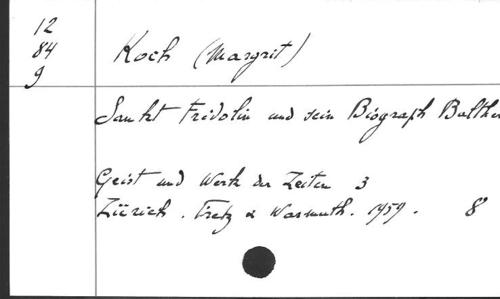 12
84
9
Koch (Margrit)
Sankt Fridolin und sein Biograph Balther
Geist und Werk der Zeiten 3
Zürich. Fretz & Wasmuth. 1959. 8°